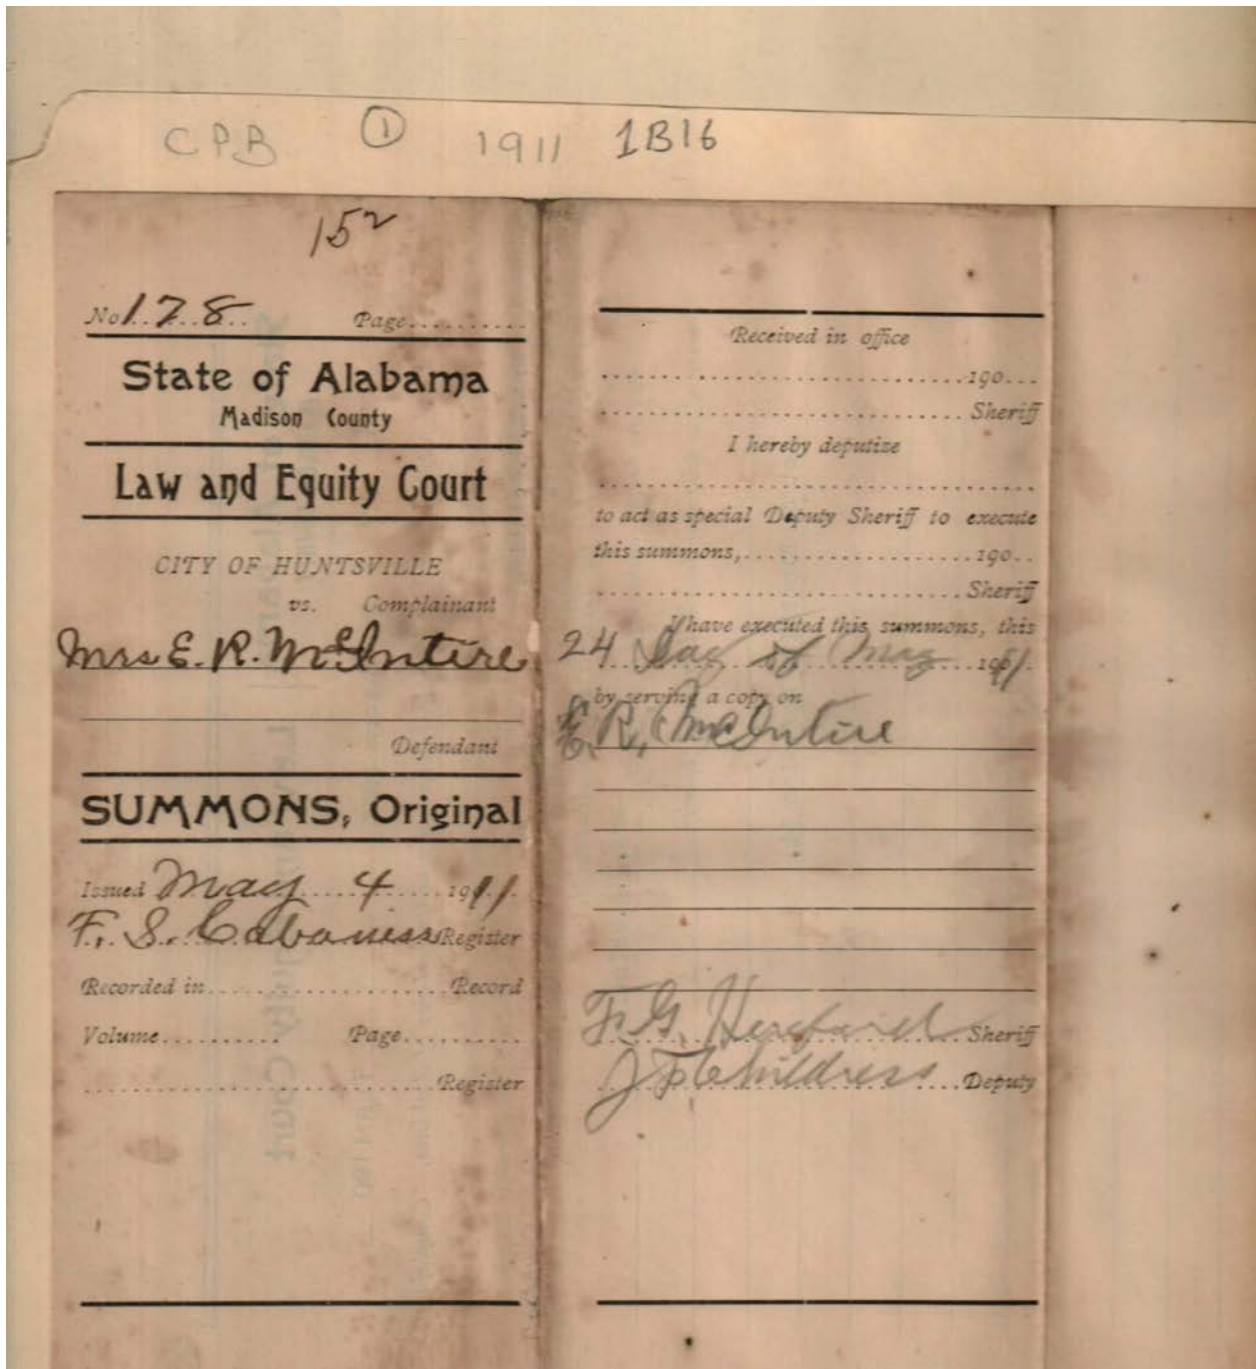 CPB ① 1911 1B16
152
No 128 Page
State of Alabama
Madison County
Law and Equity Court
CITY OF HUNTSVILLE
vs. Complainant
Mrs E. R. McIntire
Defendant
SUMMONS, Original
Issued May 4 1911
F. S. Cabaniss Register
Recorded in Record
Volume Page
Register
Received in office
190
Sheriff
I hereby deputize
to act as special Deputy Sheriff to execute
this summons, 190
Sheriff
I have executed this summons, this
24 day of May 1911
by serving a copy on
E. R. McIntire
F. G. Hereford Sheriff
J F Childress Deputy